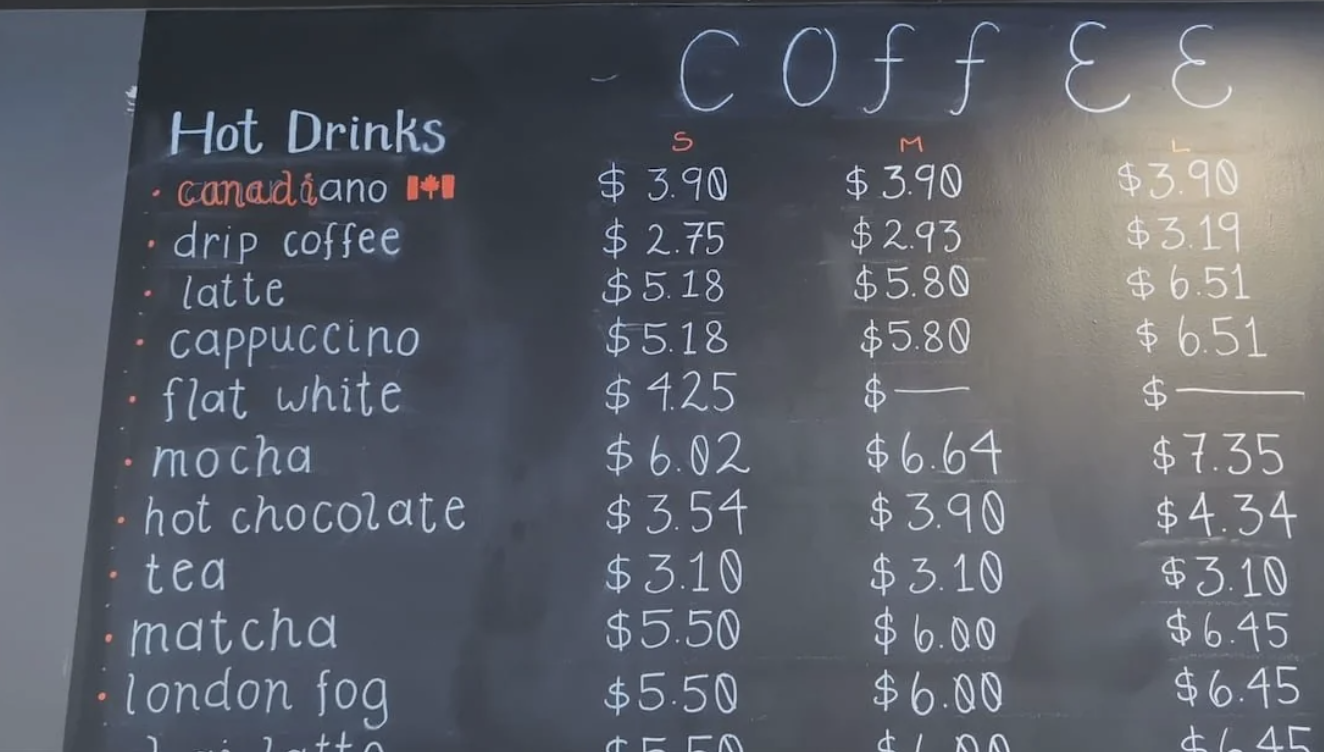 COffEE
Hot Drinks S M L
canadiano $3.90 $3.90 $3.90
drip coffee $2.75 $2.93 $3.19
latte $5.18 $5.80 $6.51
cappuccino $5.18 $5.80 $6.51
flat white $4.25 $— $—
mocha $6.02 $6.64 $7.35
hot chocolate $3.54 $3.90 $4.34
tea $3.10 $3.10 $3.10
matcha $5.50 $6.00 $6.45
london fog $5.50 $6.00 $6.45
latte $5.50 $6.00 $6.45